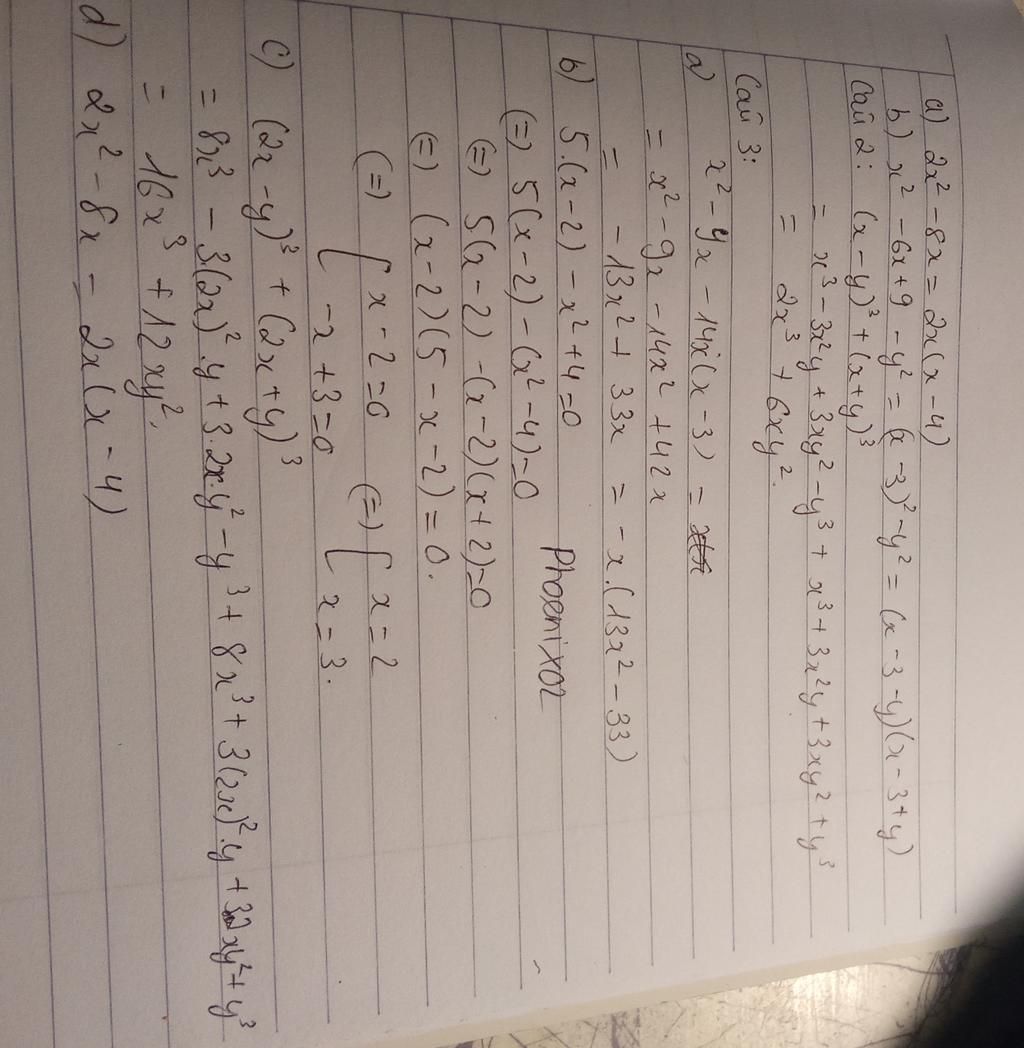 a) 2x² - 8x = 2x(x - 4)
b) x² - 6x + 9 - y² = (x - 3)² - y² = (x - 3 - y)(x - 3 + y)
Câu 2: (x - y)³ + (x + y)³
= x³ - 3x²y + 3xy² - y³ + x³ + 3x²y + 3xy² + y³
= 2x³ + 6xy².
Câu 3:
a) x² - 9x - 14x(x - 3) =
= x² - 9x - 14x² + 42x
= -13x² + 33x = -x.(13x² - 33)
b) 5.(x - 2) - x² + 4 = 0
(=) 5(x - 2) - (x² - 4) = 0
PhoenixOZ
(=) 5(x - 2) - (x - 2)(x + 2) = 0
(=) (x - 2)(5 - x - 2) = 0.
(=) [ x - 2 = 0 (=) [ x = 2
-x + 3 = 0 x = 3.
c) (2x - y)³ + (2x + y)³
= 8x³ - 3(2x)².y + 3.2x.y² - y³ + 8x³ + 3(2x)².y + 3.2xy² + y³
= 16x³ + 12xy².
d) 2x² - 8x = 2x(x - 4)